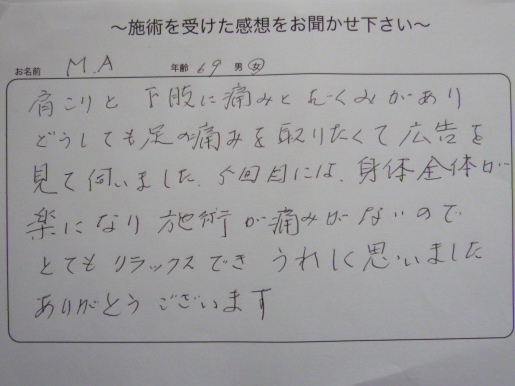 ～施術を受けた感想をお聞かせ下さい～
お名前 M.A 年齢 69 男 女
肩こりと下肢に痛みとむくみがあり
どうしても足の痛みを取りたくて広告を
見て伺いました。5回目には、身体全体が
楽になり施術が痛みがないので
とてもリラックスでき うれしく思いました
ありがとうございます